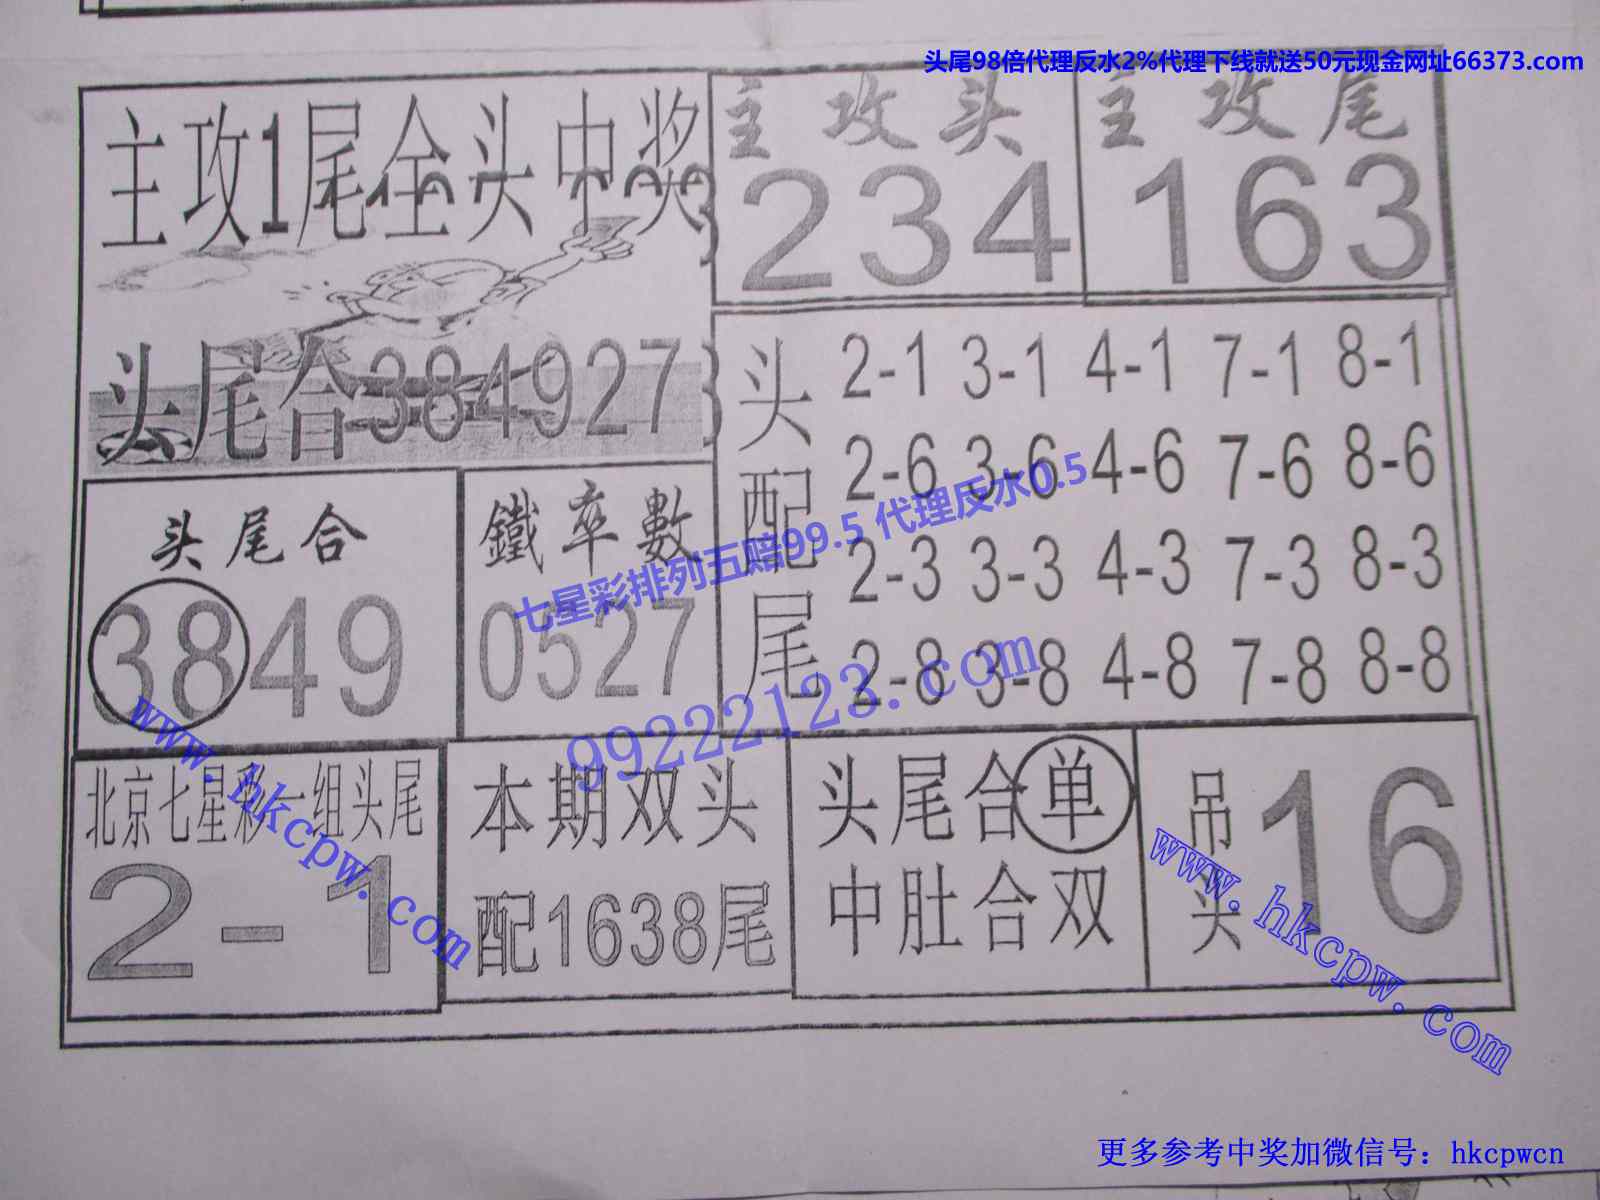 头尾98倍代理反水2%代理下线就送50元现金网址66373.com
主攻1尾全头中奖
头尾合384927
主攻头
234
主攻尾
163
头配尾
2-1 3-1 4-1 7-1 8-1
2-6 3-6 4-6 7-6 8-6
2-3 3-3 4-3 7-3 8-3
2-8 3-8 4-8 7-8 8-8
头尾合
3849
鐵卒數
0527
七星彩排列五赔99.5 代理反水0.5
99222123.com
www.hkcpw.com
北京七星彩一组头尾
2-1
本期双头
配1638尾
头尾合单
中肚合双
吊头
16
www.hkcpw.com
更多参考中奖加微信号：hkcpwcn